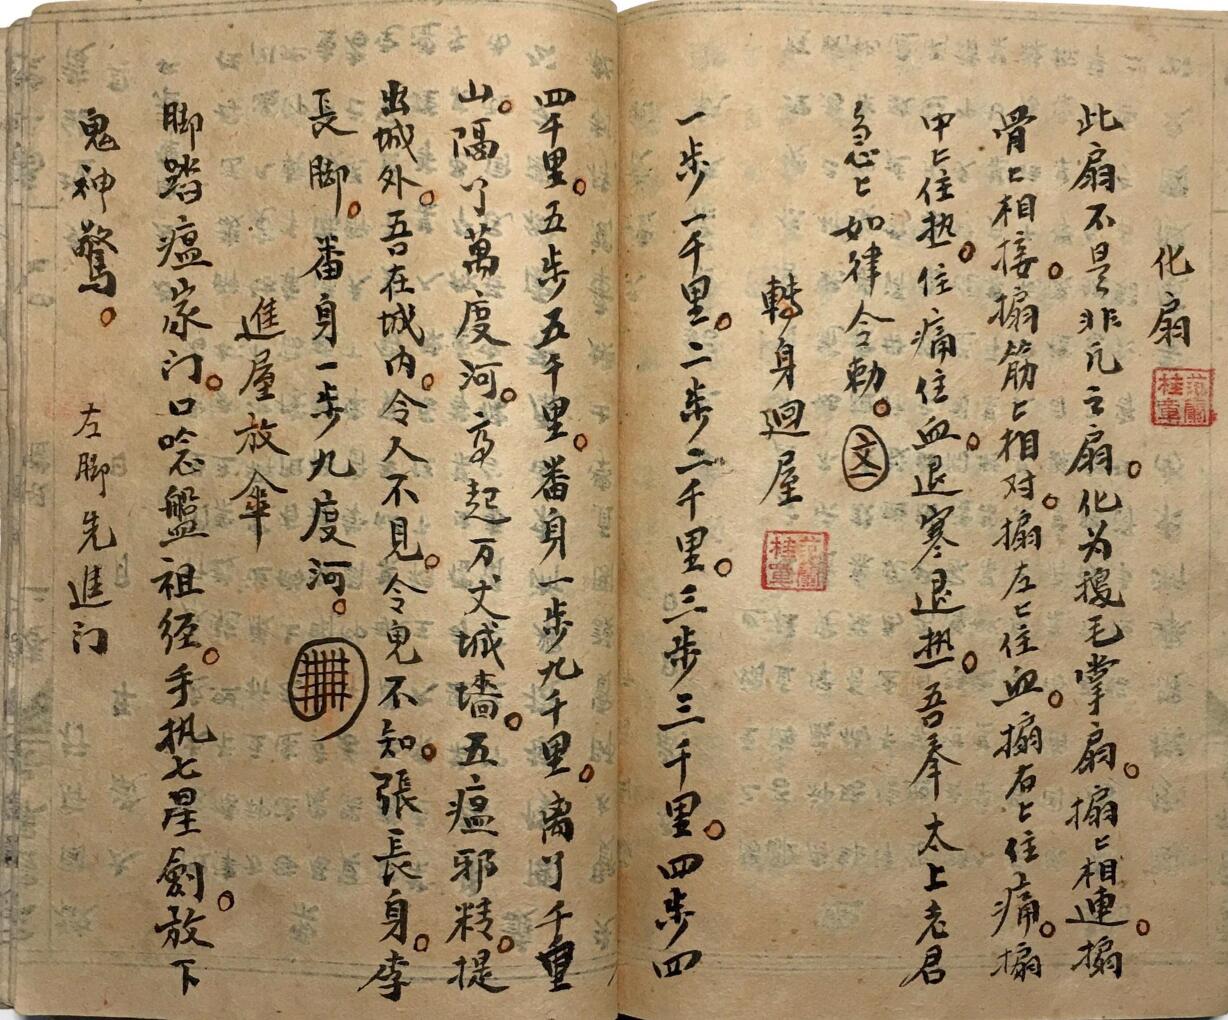 化扇
此扇不是非凡之扇。化为鵝毛掌扇。搧〻相連。搧
骨〻相接。搧筋〻相对。搧左〻住血。搧右〻住痛。搧
中〻住热。住痛住血。退寒退热。吾奉太上老君
急〻如律令勅。
轉身迴屋
一步一千里。二步二千里。三步三千里。四步四
四千里。五步五千里。番身一步九千里。离了千重
山。隔了萬度河。高起万丈城墻。五瘟邪精。提
出城外。吾在城内。令人不見。令鬼不知。張長身。李
長脚。番身一步九度河。
進屋放伞
脚踏瘟家门。口唸盤祖经。手执七星劍。放下
鬼神驚。 左脚先進门